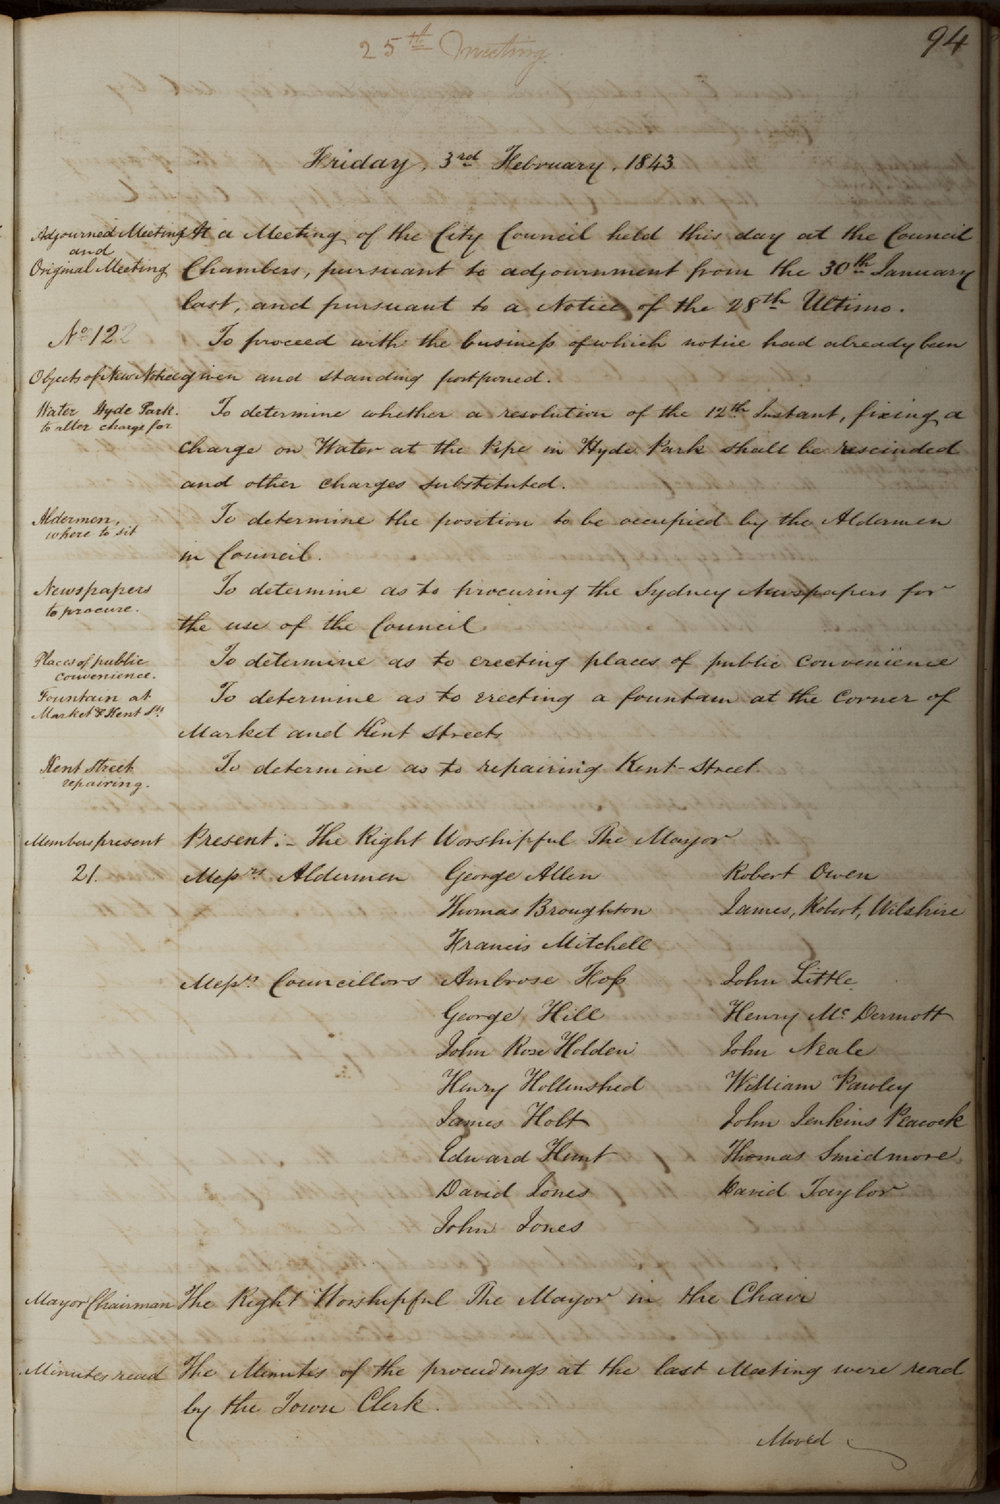 94
25th Meeting.
Friday, 3rd February, 1843
Adjourned Meeting
and
Original Meeting
At a Meeting of the City Council held this day at the Council
Chambers, pursuant to adjournment from the 30th January
last, and pursuant to a Notice of the 28th Ultimo.
No 122
To proceed with the business of which notice had already been
Objects of New Notice
given and standing postponed.
Water Hyde Park.
to alter charge for
To determine whether a resolution of the 12th Instant, fixing a
charge on Water at the Pipe in Hyde Park shall be rescinded
and other charges substituted.
Aldermen,
where to sit
To determine the position to be occupied by the Aldermen
in Council.
Newspapers
to procure.
To determine as to procuring the Sydney Newspapers for
the use of the Council
Places of public
convenience.
To determine as to erecting places of public convenience
Fountain at
Market & Kent Sts
To determine as to erecting a fountain at the corner of
Market and Kent Streets
Kent Street
repairing.
To determine as to repairing Kent-Street.
Members present
21.
Present:- The Right Worshipful The Mayor
Messrs Aldermen George Allen Robert Owen
Thomas Broughton James, Robert, Wilshire
Francis Mitchell
Messrs Councillors Ambrose Foss John Little
George Hill Henry McDermott
John Rose Holden John Neale
Henry Hollinshed William Pawley
James Holt John Jenkins Peacock
Edward Hunt Thomas Smidmore
David Jones David Taylor
John Jones
Mayor Chairman
The Right Worshipful The Mayor in the Chair
Minutes read
The Minutes of the proceedings at the last Meeting were read
by the Town Clerk.
Moved